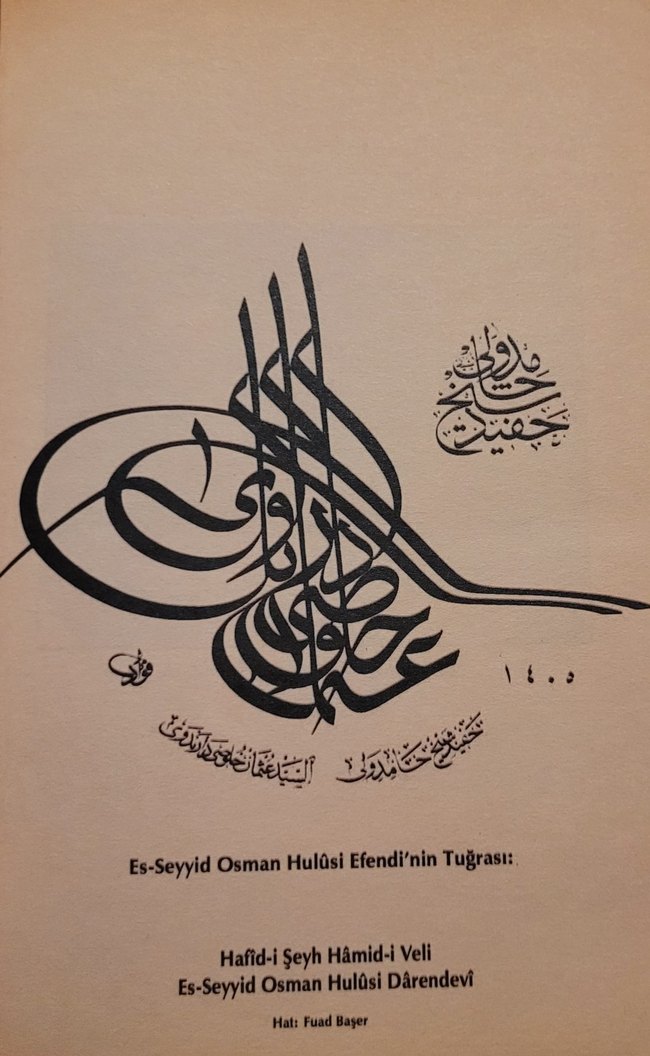 حفيد شيخ حامد ولى
عثمان خلوصى دارندوى
١٤٠٥
فؤاد
حفيد شيخ حامد ولى
السيد عثمان خلوصى دارندوى
Es-Seyyid Osman Hulûsi Efendi’nin Tuğrası:
Hafîd-i Şeyh Hâmid-i Veli
Es-Seyyid Osman Hulûsi Dârendevî
Hat: Fuad Başer